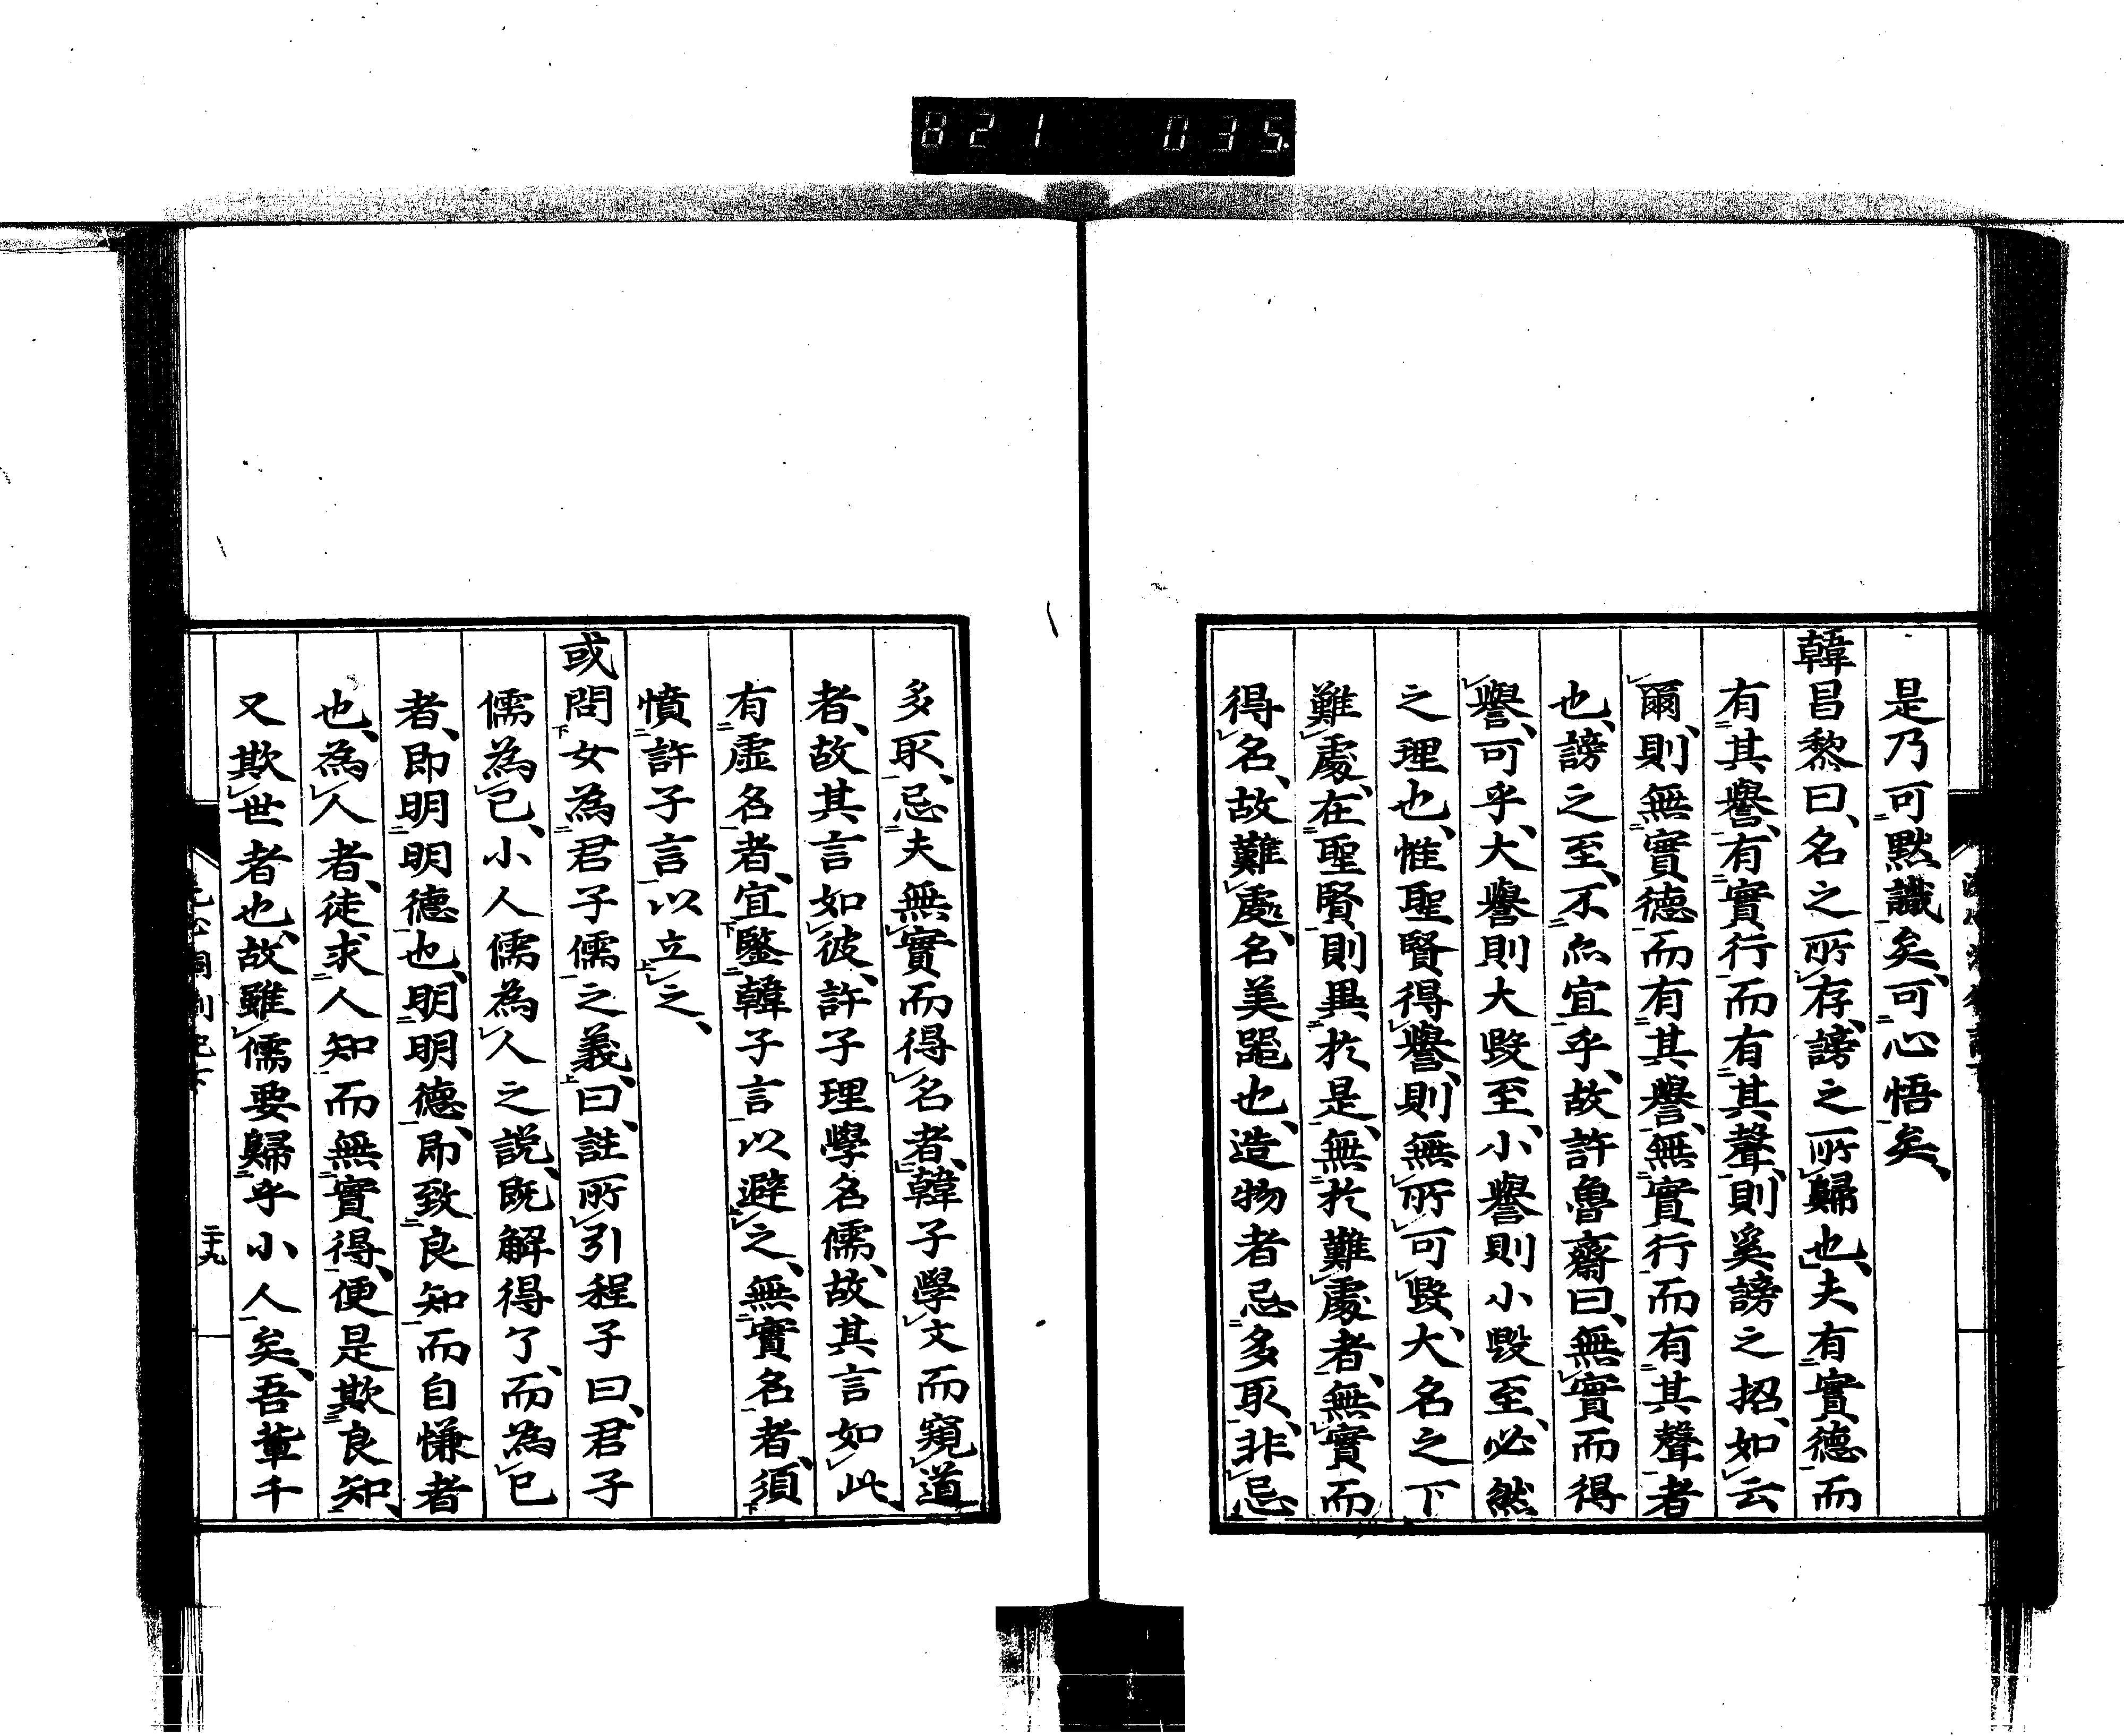 821 035.
是乃可默識矣、可心悟矣、
韓昌黎曰、名之所存、謗之所歸也、夫有實德而
有其譽、有實行而有其聲、則奚謗之招、如云
爾、則無實德而有其譽、無實行而有其聲者
也、謗之至、不亦宜乎、故許魯齋曰、無實而得
譽、可乎、大譽則大毀至、小譽則小毀至、必然
之理也、惟聖賢得譽、則無所可毀、大名之下
難處、在聖賢則異於是、無於難處者、無實而
得名、故難處、名美噐也、造物者忌多取、非忌
多取、忌夫無實而得名者、韓子學文而窺道
者、故其言如彼、許子理學名儒、故其言如此、
有虛名者、宜鑒韓子言以避之、無實名者、須
憤許子言以立之、
或問女為君子儒之義、曰、註所引程子曰、君子
儒為己、小人儒為人之説、既解得了、而為己
者、即明明德也、明明德、即致良知而自慊者
也、為人者、徒求人知而無實得、便是欺良知、
又欺世者也、故雖儒要歸乎小人矣、吾輩千
二十九